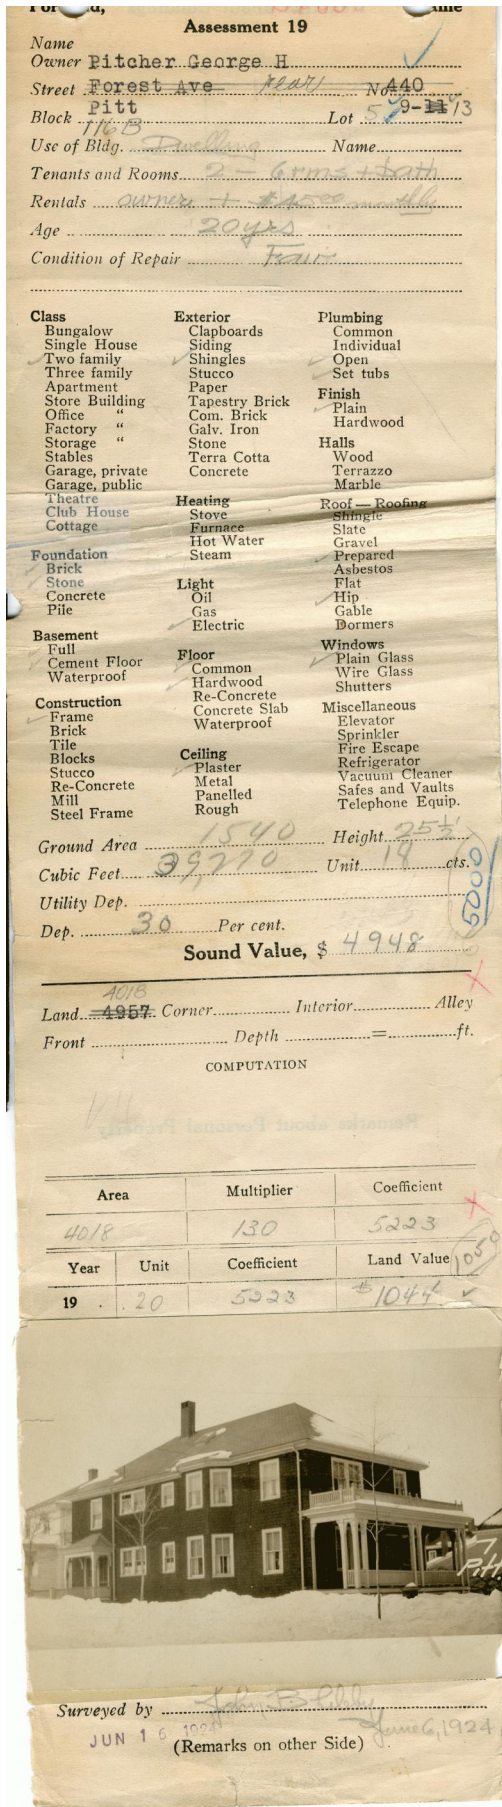 Assessment 19
Name
Owner Pitcher George H
Street Forest Ave rear No 440
Pitt
Block 116 B Lot 5 9-11 13
Use of Bldg. Dwelling Name
Tenants and Rooms 2 - 6 rms + bath
Rentals owner + $45.00 monthly
Age 20 yrs
Condition of Repair Fair
Class
Bungalow
Single House
Two family
Three family
Apartment
Store Building
Office "
Factory "
Storage "
Stables
Garage, private
Garage, public
Theatre
Club House
Cottage
Foundation
Brick
Stone
Concrete
Pile
Basement
Full
Cement Floor
Waterproof
Construction
Frame
Brick
Tile
Blocks
Stucco
Re-Concrete
Mill
Steel Frame
Exterior
Clapboards
Siding
Shingles
Stucco
Paper
Tapestry Brick
Com. Brick
Galv. Iron
Stone
Terra Cotta
Concrete
Heating
Stove
Furnace
Hot Water
Steam
Light
Oil
Gas
Electric
Floor
Common
Hardwood
Re-Concrete
Concrete Slab
Waterproof
Ceiling
Plaster
Metal
Panelled
Rough
Plumbing
Common
Individual
Open
Set tubs
Finish
Plain
Hardwood
Halls
Wood
Terrazzo
Marble
Roof — Roofing
Shingle
Slate
Gravel
Prepared
Asbestos
Flat
Hip
Gable
Dormers
Windows
Plain Glass
Wire Glass
Shutters
Miscellaneous
Elevator
Sprinkler
Fire Escape
Refrigerator
Vacuum Cleaner
Safes and Vaults
Telephone Equip.
Ground Area 1540 Height 25½
Cubic Feet 39,270 Unit 18 cts.
5000
Utility Dep.
Dep. 30 Per cent.
Sound Value, $ 4948
4018
Land 4957 Corner Interior Alley
Front Depth = ft.
COMPUTATION
Remarks about Personal Property
Area Multiplier Coefficient
4018 130 5223
Year Unit Coefficient Land Value 1050
19 . .20 5223 $1044
Surveyed by John B Libby
JUN 16 1924 June 6, 1924
(Remarks on other Side)